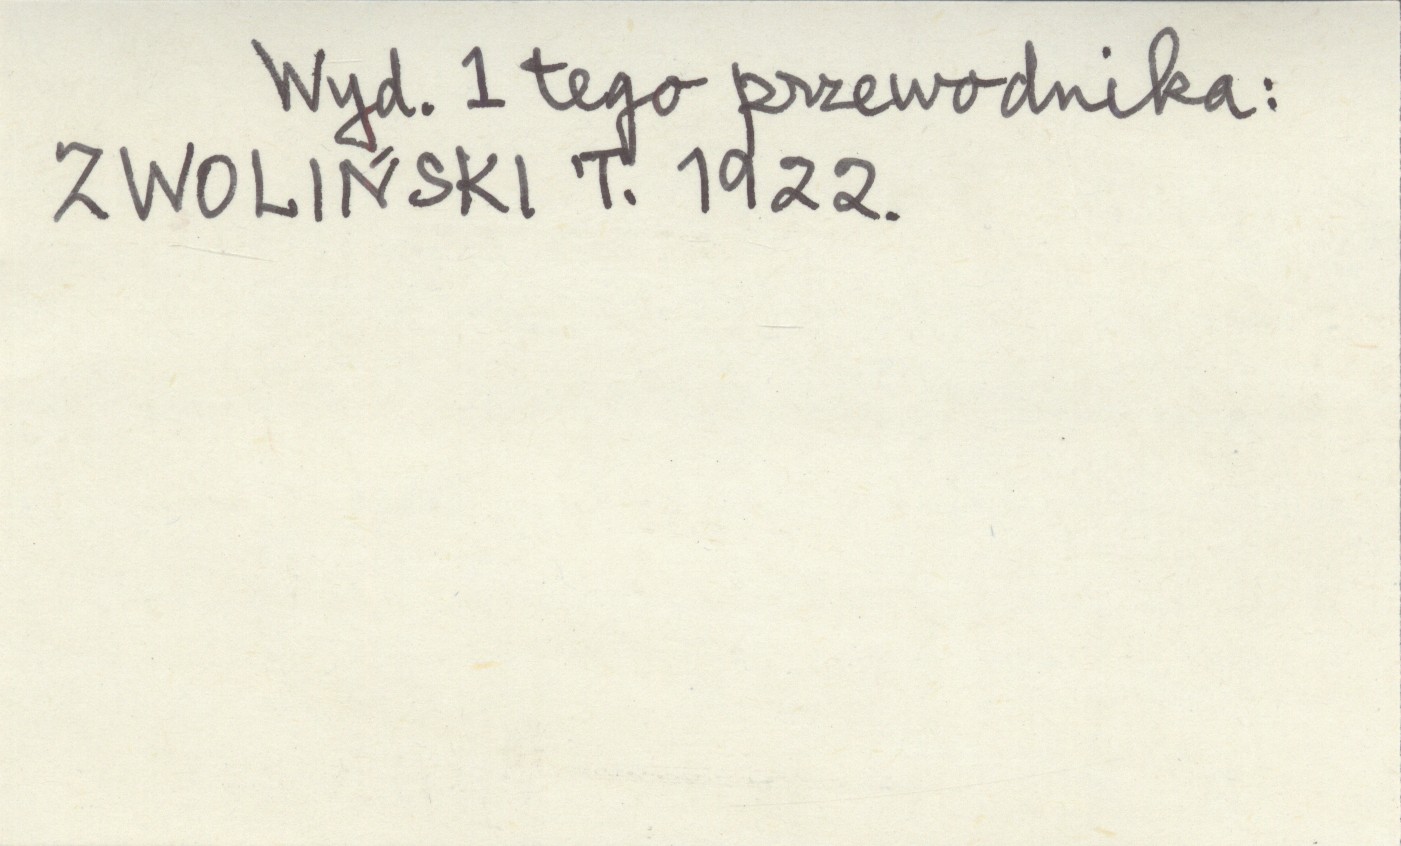 Wyd. 1 tego przewodnika:
ZWOLIŃSKI T. 1922.